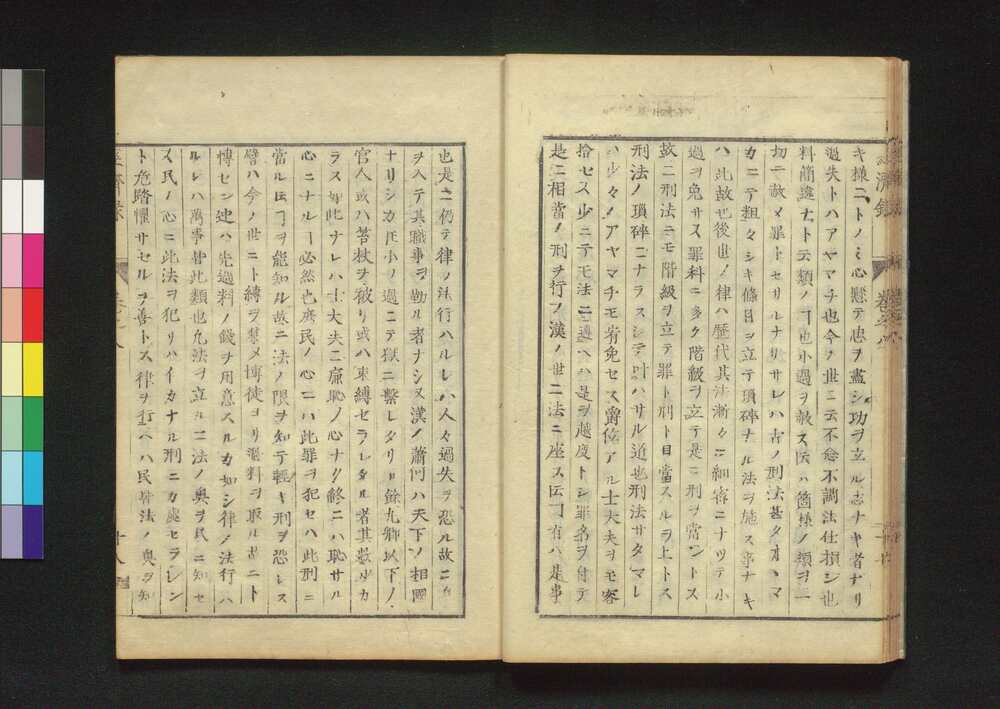 キ様ニトノミ心懸テ忠ヲ盡シ功ヲ立ル志ナキ者ナリ
過失トハアヤマチ也今ノ世ニ云不念不調法仕損シ也
料簡違ナト云類ノ也小過ヲ赦ス云ハ箇様ノ類ヲ一
切ニ故メ罪トセサルナリサレハ古ノ刑法甚タオヽマ
カニテ粗々シキ條目ヲ立テ瑣碎ナル法ヲ施ス事ナキ
ハ此故也後世ノ律ハ歴代其法漸々ニ細密ニナツテ小
過ヲ免サス罪科ニ多ク階級ヲ立テ是ニ刑ヲ當ントス
故ニ刑法ニモ階級ヲ立テ罪ト刑ト目當スルヲ上トス
刑法ノ瑣碎ニナラスシテ叶ハサル道也刑法サタマレ
ハ少々ノアヤマチモ宥免セス爵位アル士大夫ヲモ容
捨セス少ニテモ法ニ違ヘハ是ヲ越度トシ罪名ヲ付テ
是ニ相當ノ刑ヲ行フ漢ノ世ニ法ニ座ス云有ハ是事
也是ニ仍テ律ノ法行ハルレハ人々過失ヲ恐ル故ニ
ヲ入テ其職事ヲ勤ル者ナシ又漢ノ蕭何ハ天下ノ相國
ナリシカ小ノ過ニテ獄ニ繋レタリ其餘九卿以下ノ
官人或ハ笞杖ヲ被リ或ハ束縛セラレタル者其數少カ
ラス如此ナレハ士大夫ニ廉恥ノ心ナク終ニハ恥サル
心ニナル必然也庶民ノ心ニハ此罪ヲ犯セハ此刑ニ
當ル云ヲ能知ル故ニ法ノ限ヲ知テ輕キ刑ヲ恐レス
譬ハ今ノ世ニト縛ヲ禁メ博徒ヨリ過料ヲ取ル
博セン迚ハ先過料ノ錢ヲ用意スルカ如シ律ノ法行ハ
ルレハ萬事皆此類也凡法ヲ立ルニ法ノ奥ヲ民ニ知セ
ス民ノ心ニ此法ヲ犯リハイカナル刑ニカ處セラレン
ト危踏懼サセルヲ善トス律ヲ行ヘハ民皆法ノ奥ヲ知